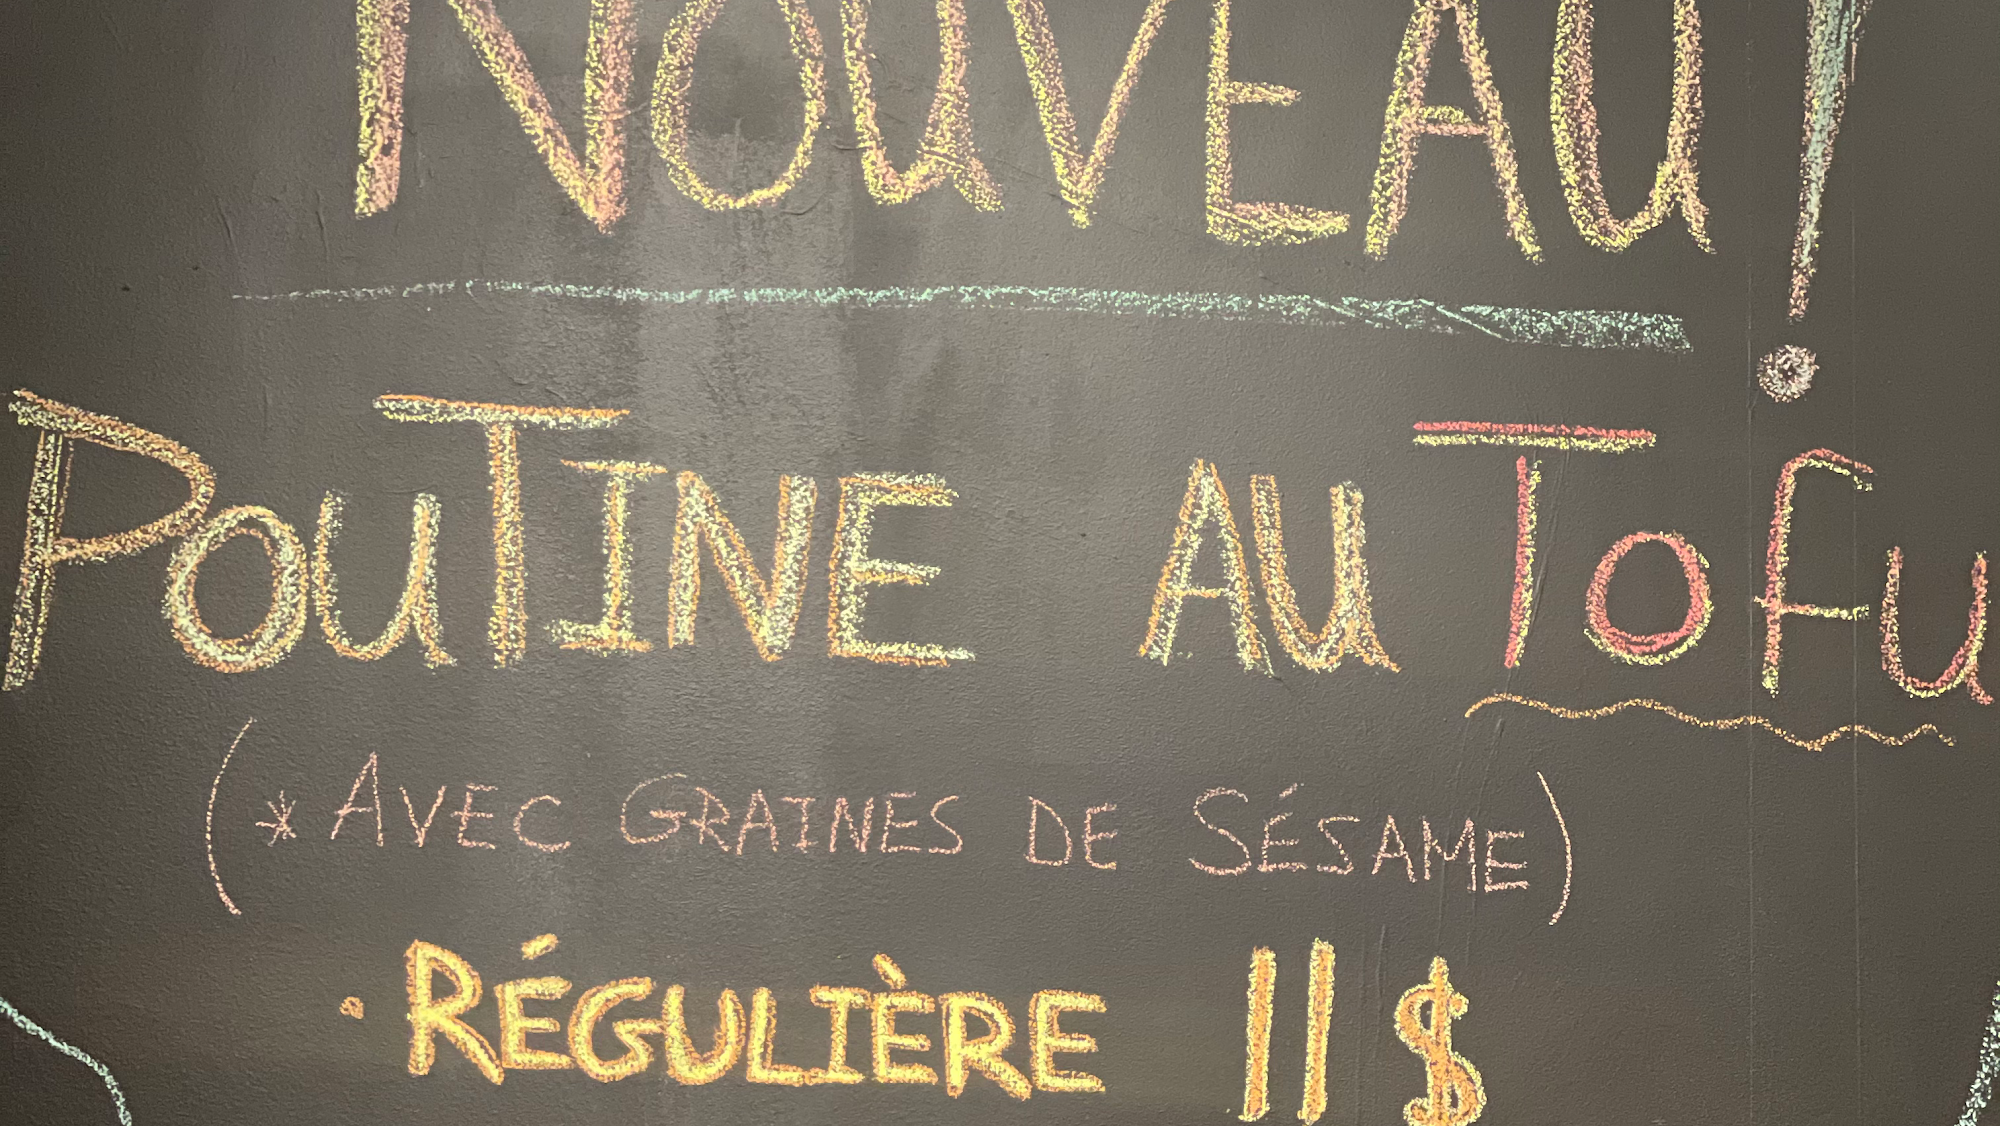 NOUVEAU!
POUTINE AU TOFU
(* AVEC GRAINES DE SÉSAME)
· RÉGULIÈRE 11$